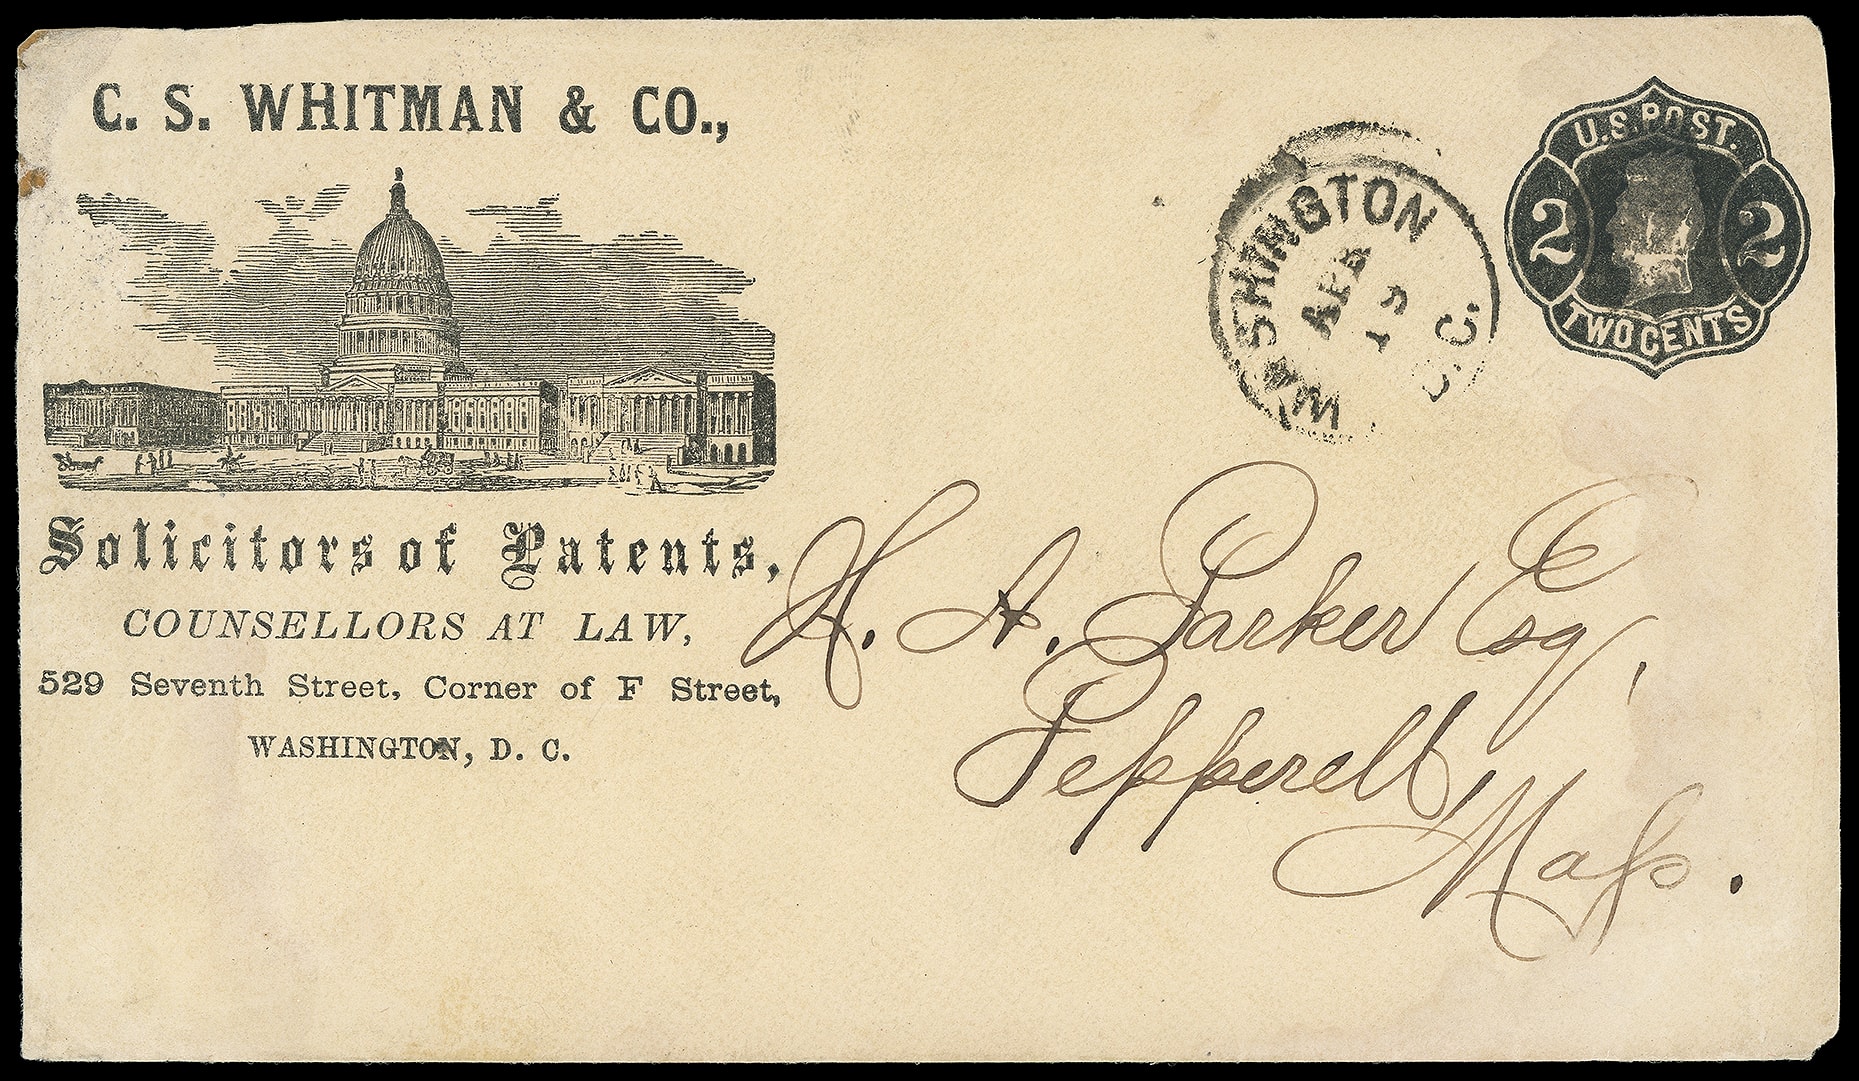 C. S. WHITMAN & CO.,
Solicitors of Patents,
COUNSELLORS AT LAW,
529 Seventh Street, Corner of F Street,
WASHINGTON, D. C.
WASHINGTON
APR
19
D.C.
U.S. POST.
2 2
TWO CENTS
H. A. Parker Esq,
Pepperell,
Maſs.